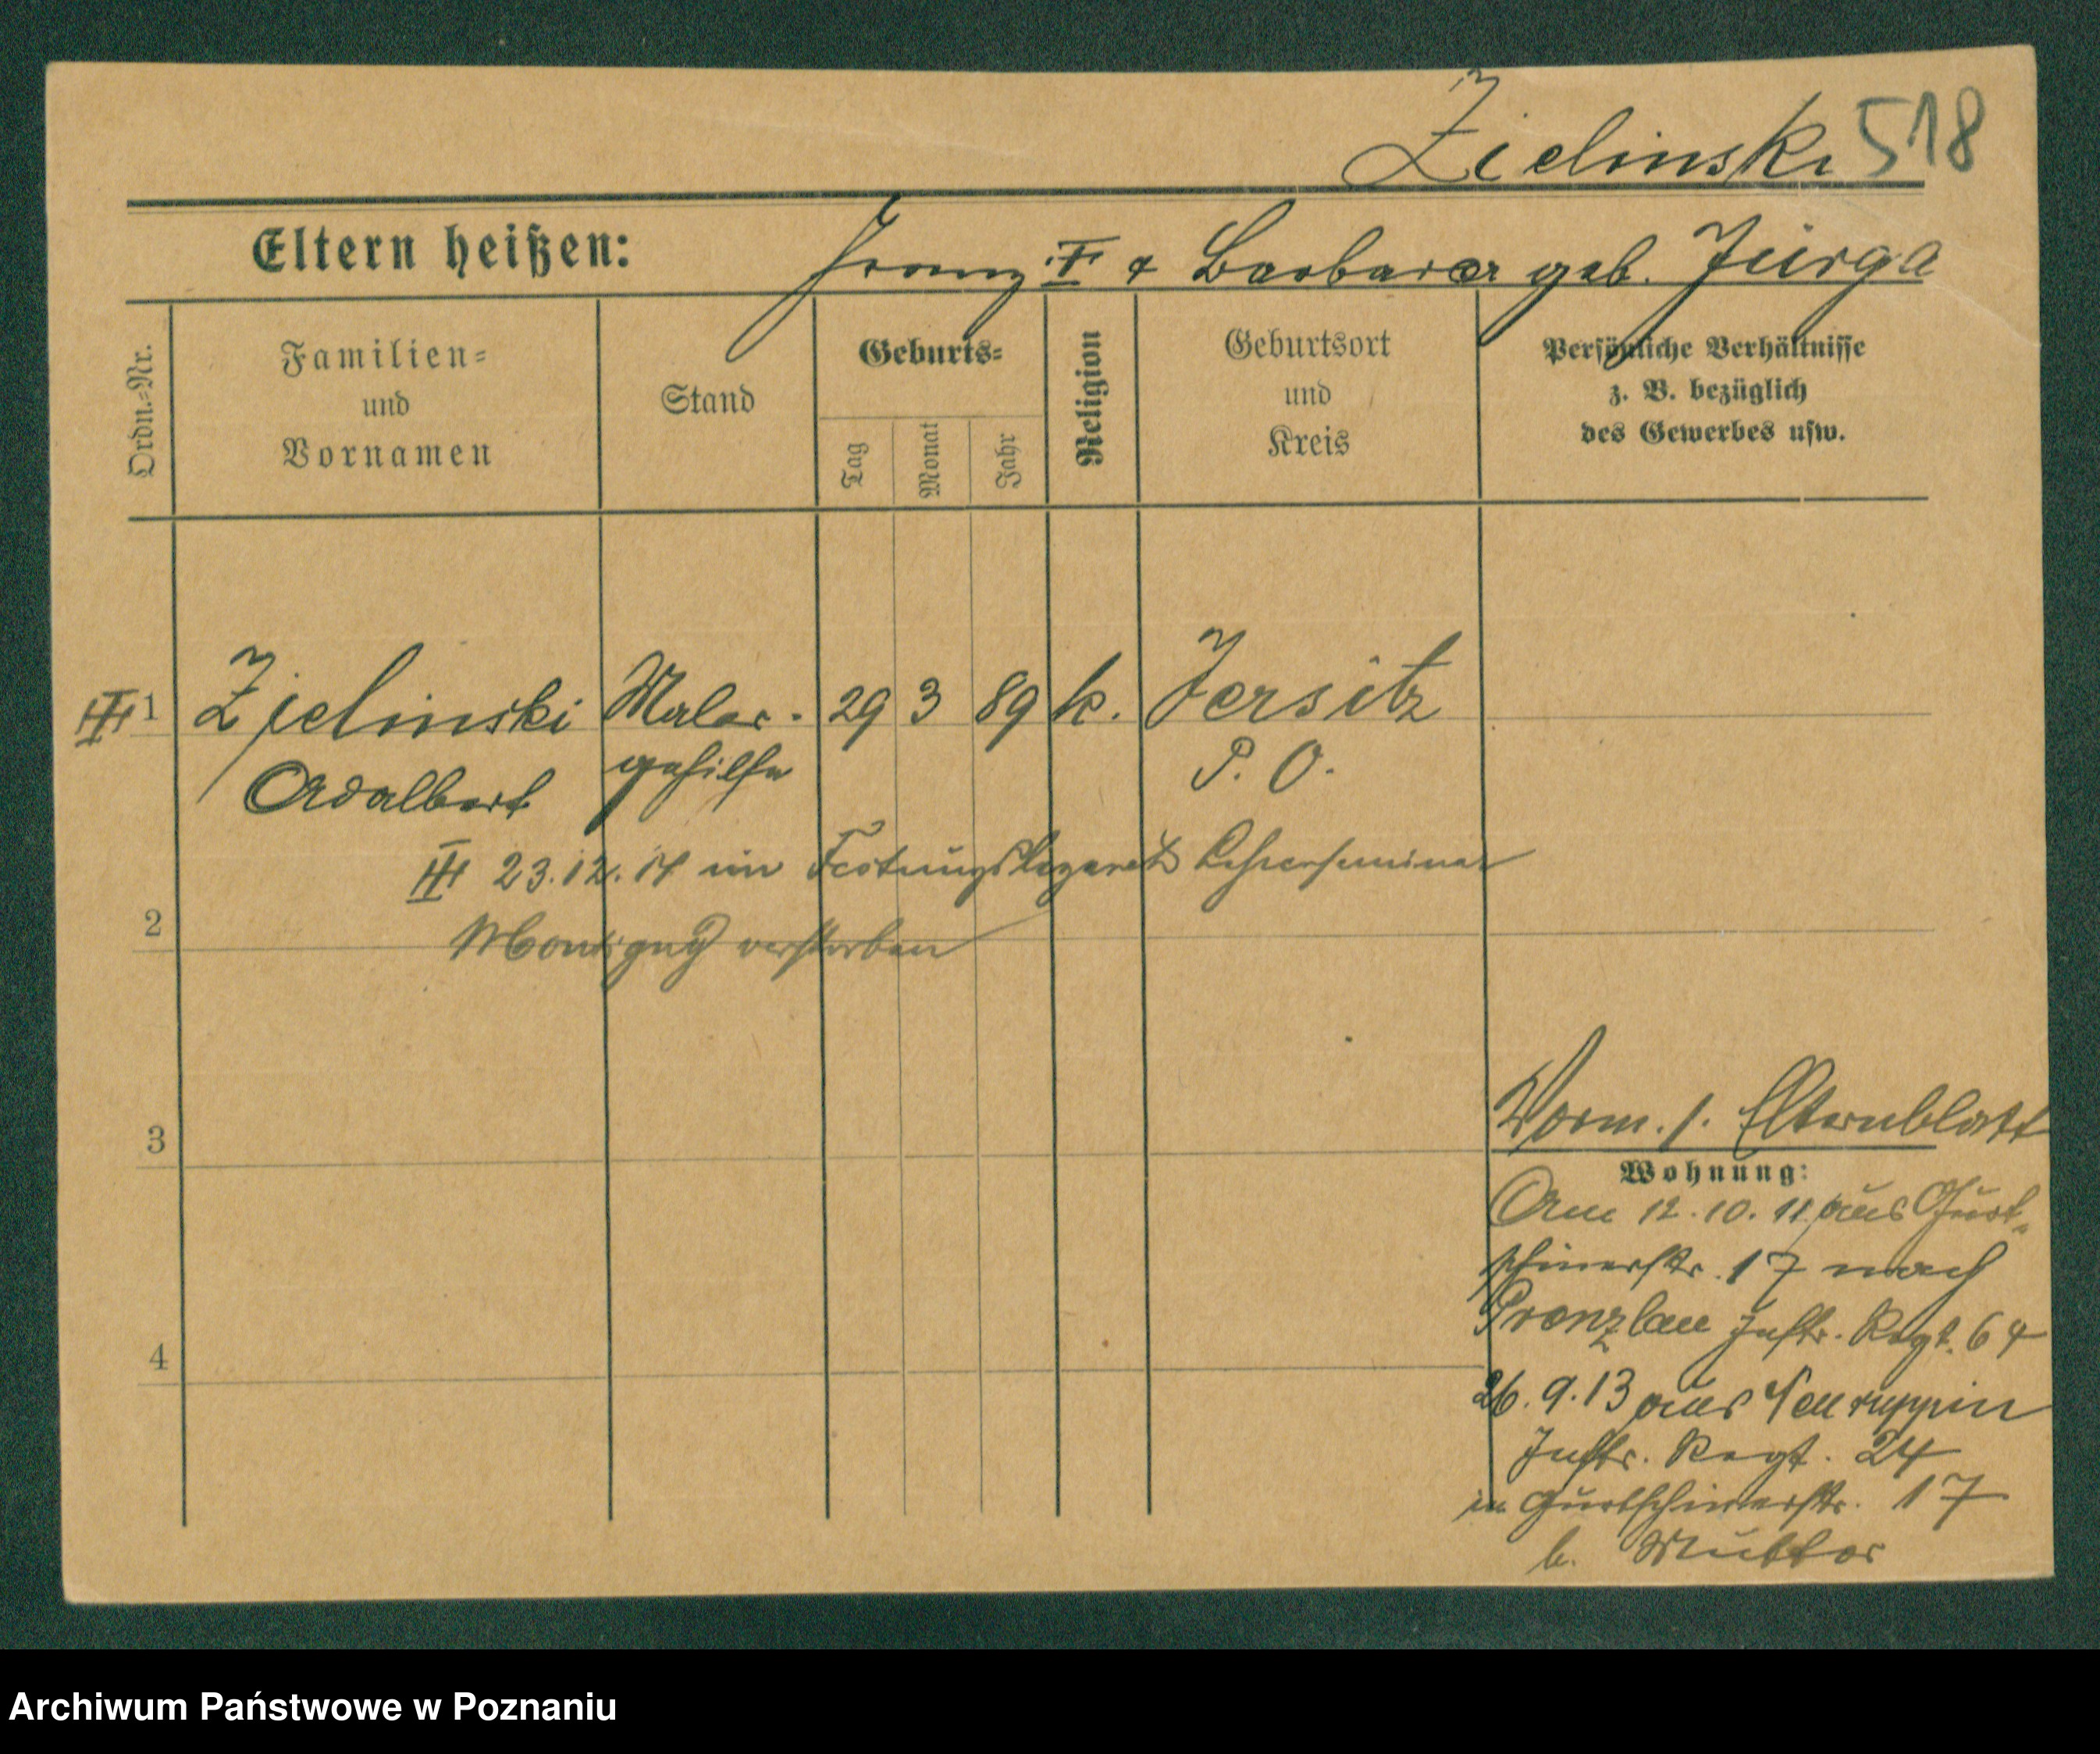 Zielinski 518
Eltern heißen: Franz † & Barbara geb. Jurga
Ordn.-Nr.
Familien-
und
Vornamen
Stand
Geburts-
Tag
Monat
Jahr
Religion
Geburtsort
und
Kreis
Persönliche Verhältnisse
z. B. bezüglich
des Gewerbes usw.
1 Zielinski Maler- 29 3 89 k. Jersitz
Adalbert gehilfe P. O.
23.12.14 im Festungslazarett Lehrerseminar
2
Montigny verstorben
3
Vorm. s. Elternblatt
Wohnung:
Am 12.10.11 aus Gurt-
schinerstr. 17 nach
Prenzlau Inftr. Regt. 64
4
26.9.13 aus Neuruppin
Inftr. Regt. 24
in Gurtschinerstr. 17
b. Mutter
Archiwum Państwowe w Poznaniu